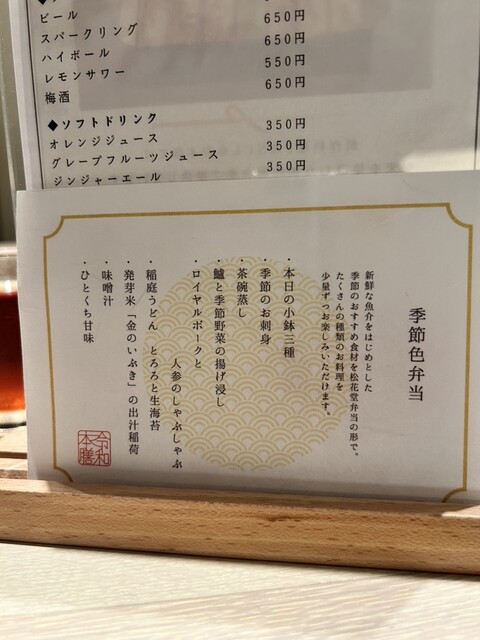 ビール 650円
スパークリング 650円
ハイボール 550円
レモンサワー 650円
梅酒
◆ソフトドリンク
オレンジジュース 350円
グレープフルーツジュース 350円
ジンジャーエール 350円
季節色弁当
新鮮な魚介をはじめとした
季節のおすすめ食材を松花堂弁当の形で。
たくさんの種類のお料理を
少量ずつお楽しみいただけます。
・本日の小鉢三種
・季節のお刺身
・茶碗蒸し
・鱸と季節野菜の揚げ浸し
・ロイヤルポークと
人参のしゃぶしゃぶ
・稲庭うどん とろろと生海苔
・発芽米「金のいぶき」の出汁稲荷
・味噌汁
・ひとくち甘味
令和
本膳